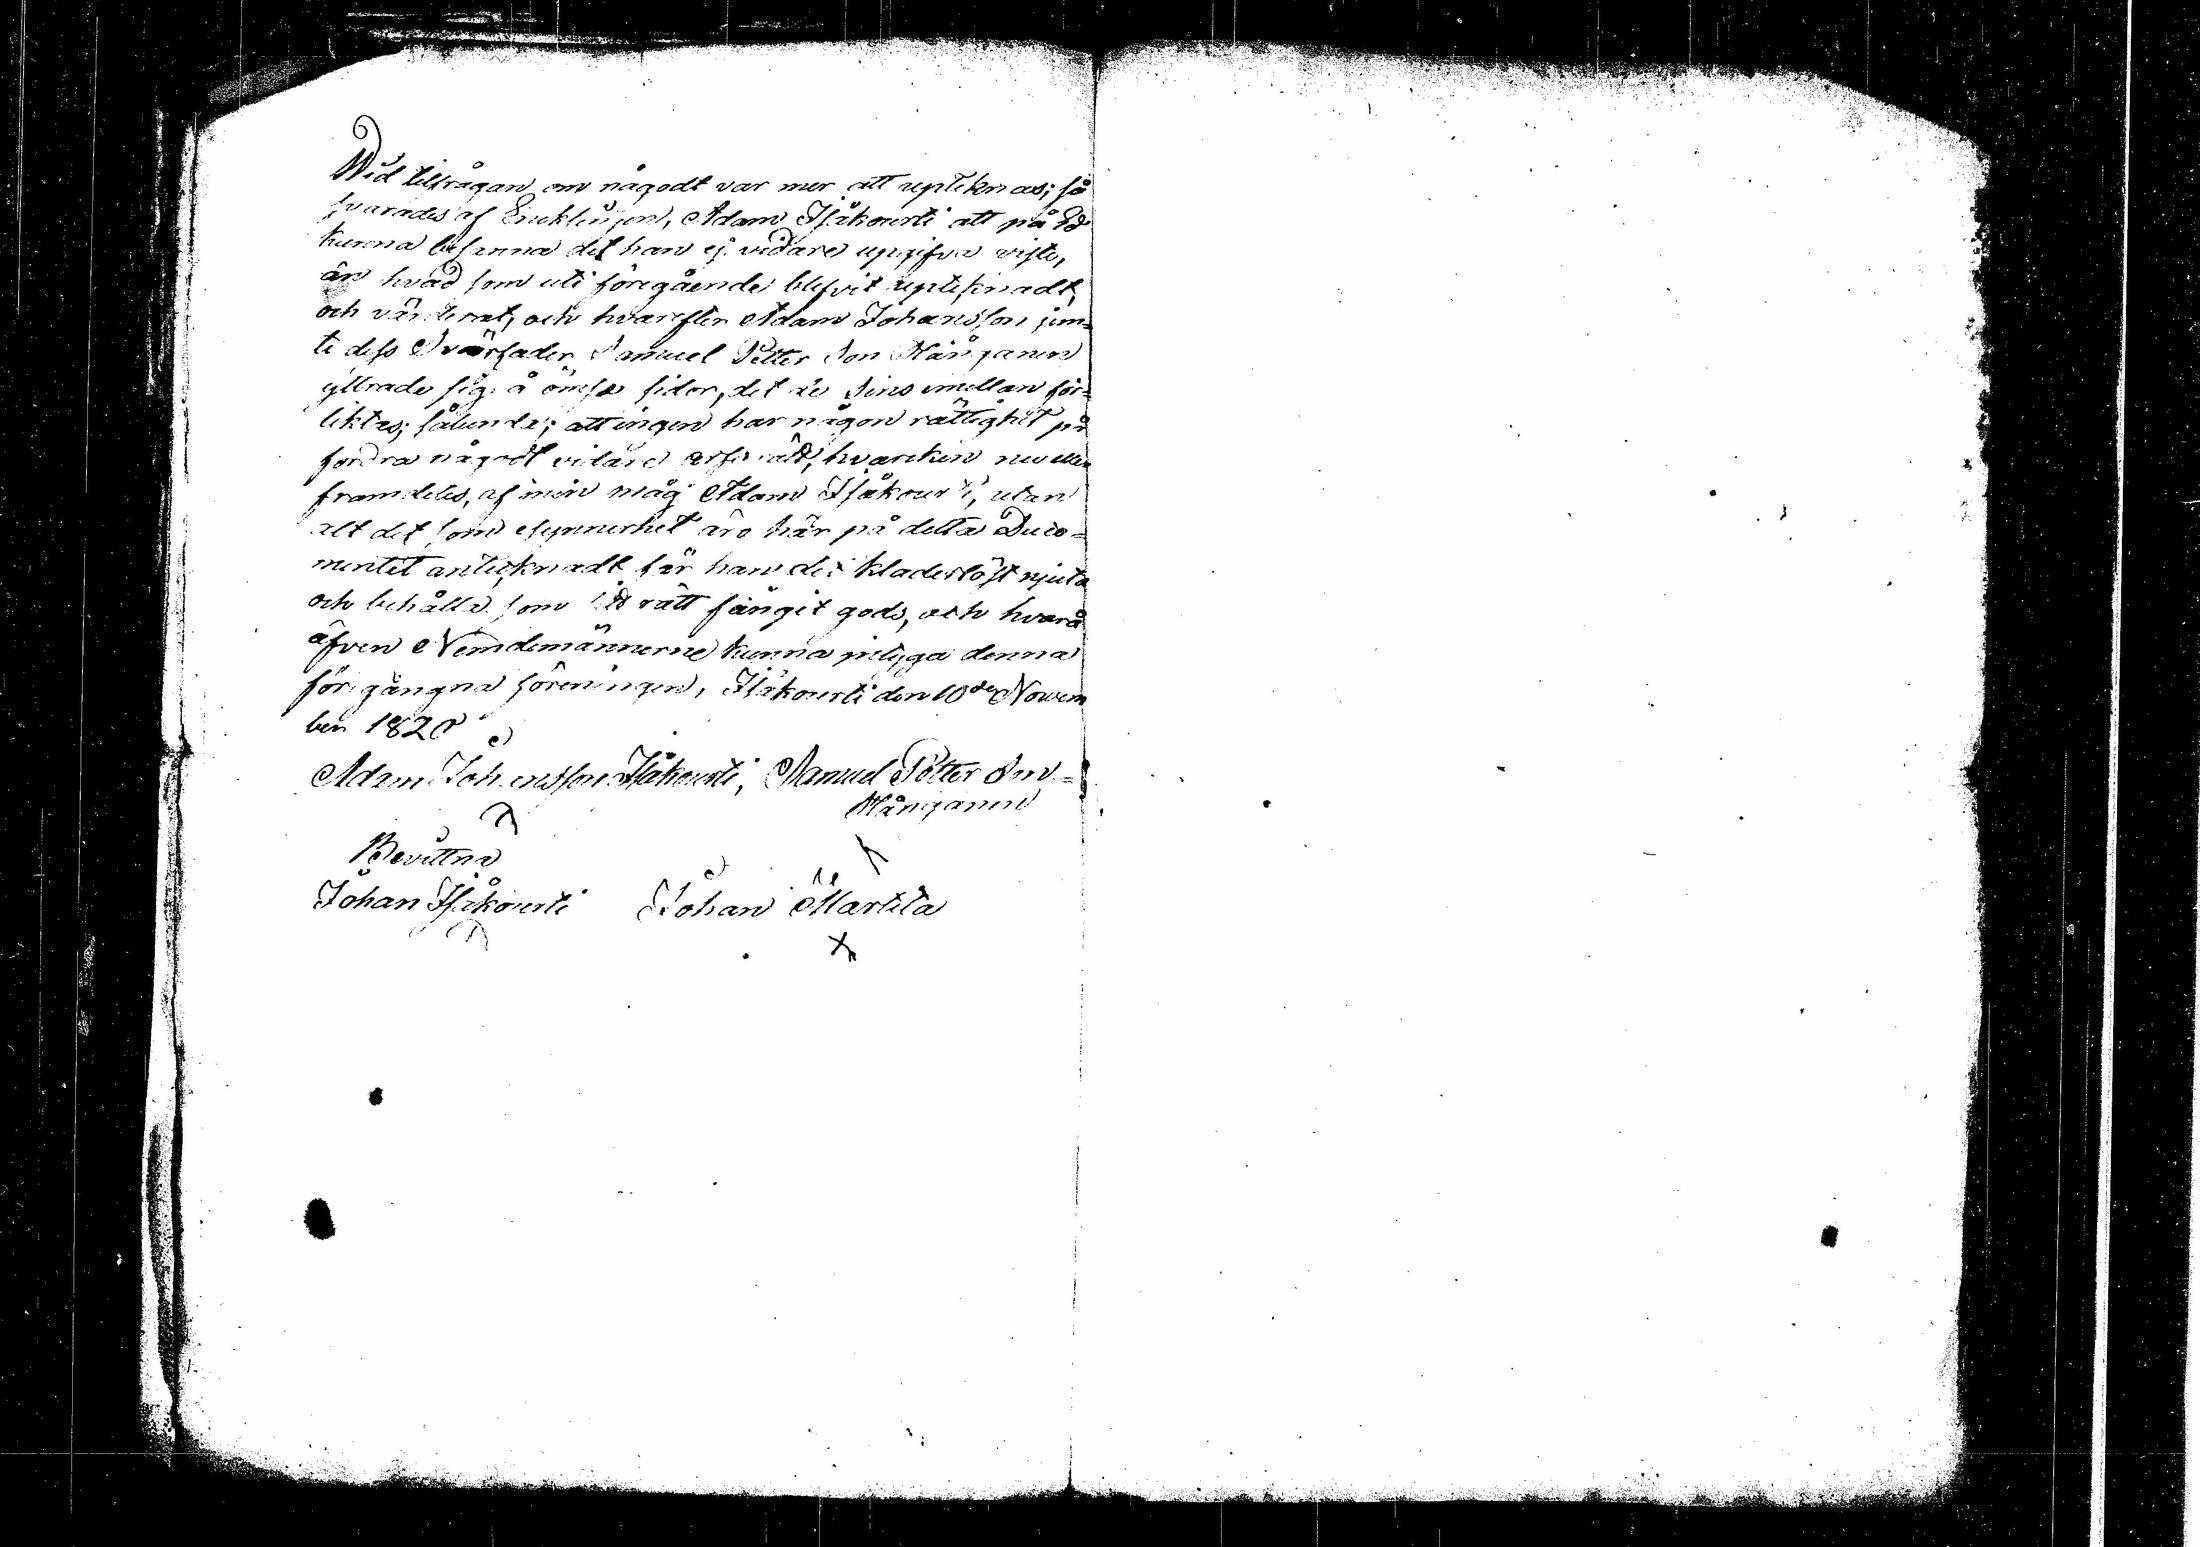 Wid tilfrågan om någodt var mer att upteknas; så
svarades af Eneklingen, Adam Isåkourti att på Ed
kunna besanna det han ej vidare upgifva viste,
än hvad som uti föregående blefvit upteknadt,
och värderat, och hvarefter Adam Johansson jem-
te dess Svärfader Samuel Petter Son Månganen
yttrade sig å ömse sidor, det de sins emellan för-
liktas; sålunda; att ingen har någon rättighet på
fordra någodt vidare arfsrätt, hvarken nu eller
framdeles, af min måg Adam Isåkourti, utan
alt det som esynnerhet äro här på detta Duco-
mentet anteknadt får han det kladeslöst njuta
och behålla som rätt fångit gods, och hvarå
äfven Nemdemännerne kunna intyga denna
föregångna föreningen, Isåkourti den 10de Novem
ber 1820
Adam Johansson Isåkourti, Samuel Petter Son
Månganen
Bevittna
Johan Isåkourti Johan Martila